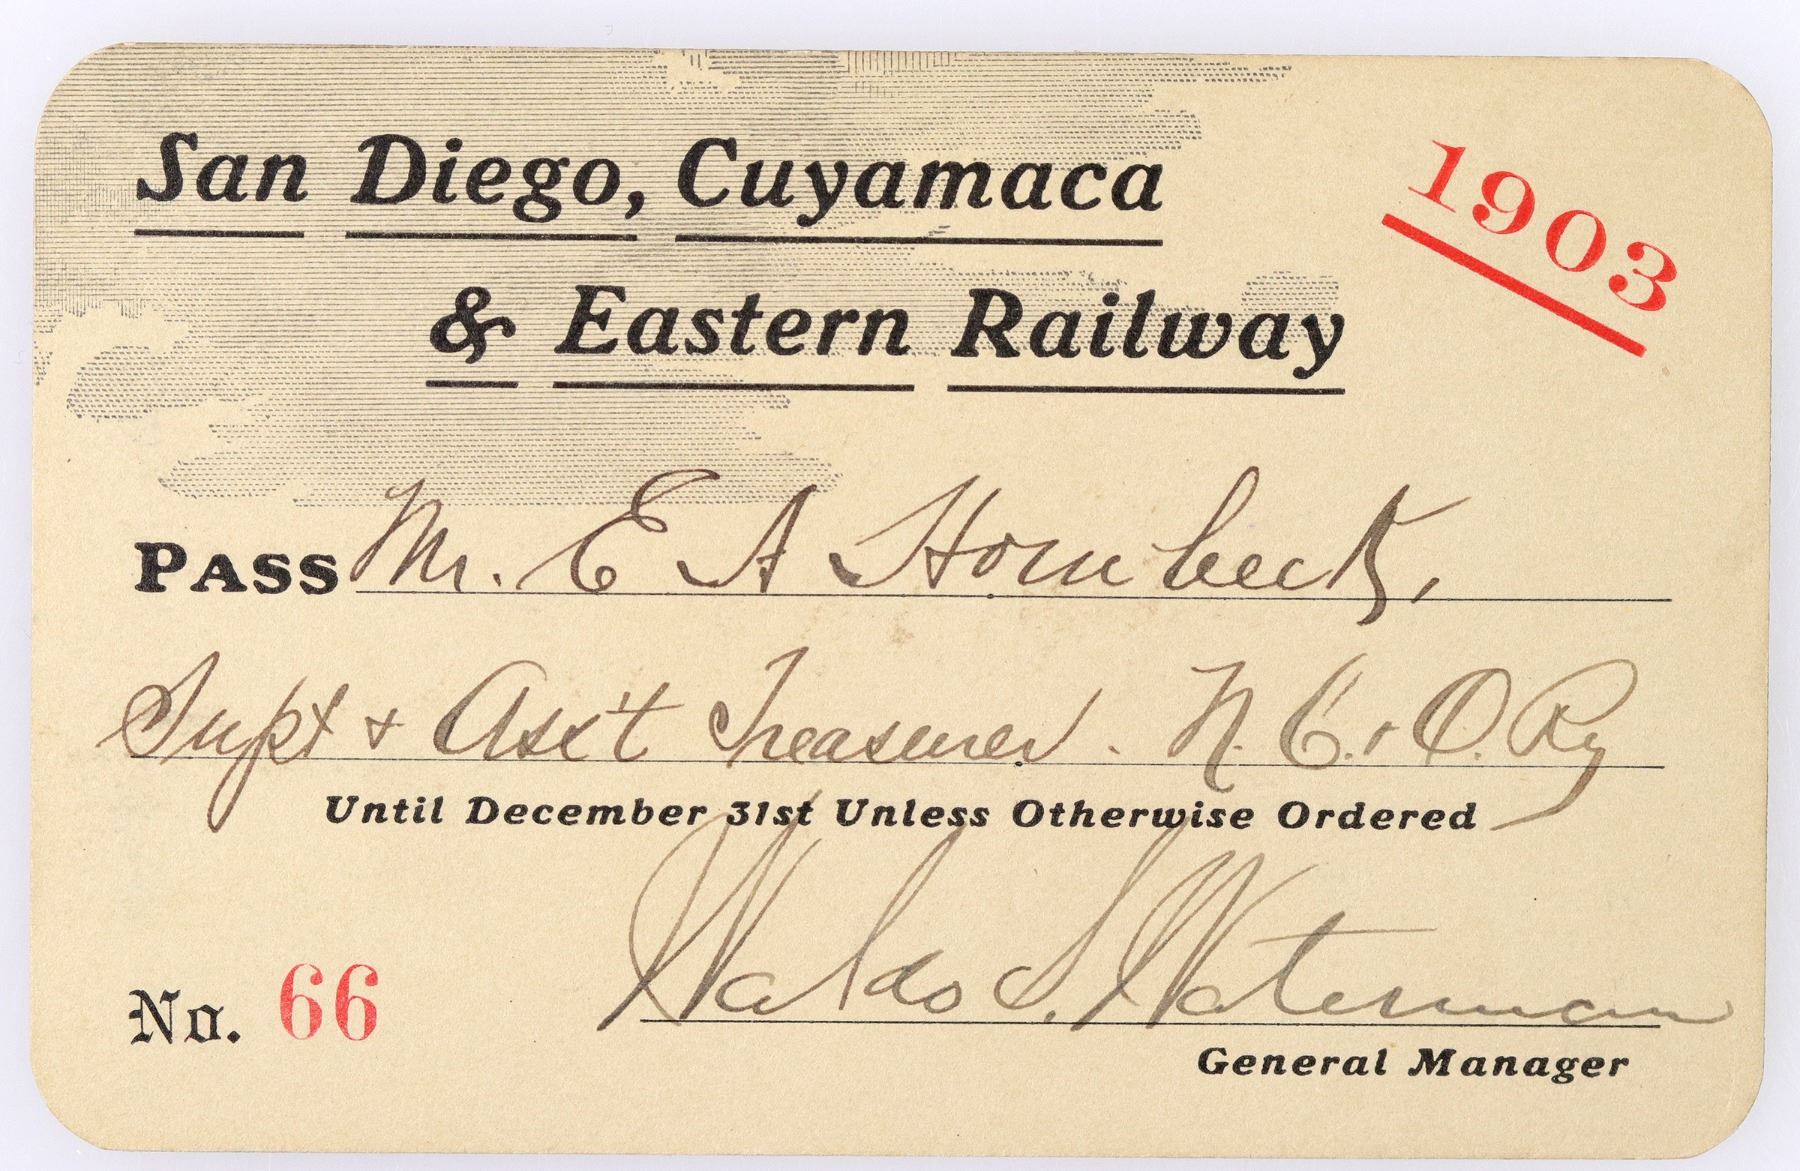 San Diego, Cuyamaca
1903
& Eastern Railway
PASS Mr. E A Hornbeck,
Supt & Ass't Treasurer. N. C. & O. Ry
Until December 31st Unless Otherwise Ordered
Waldo S. Waterman
No. 66
General Manager